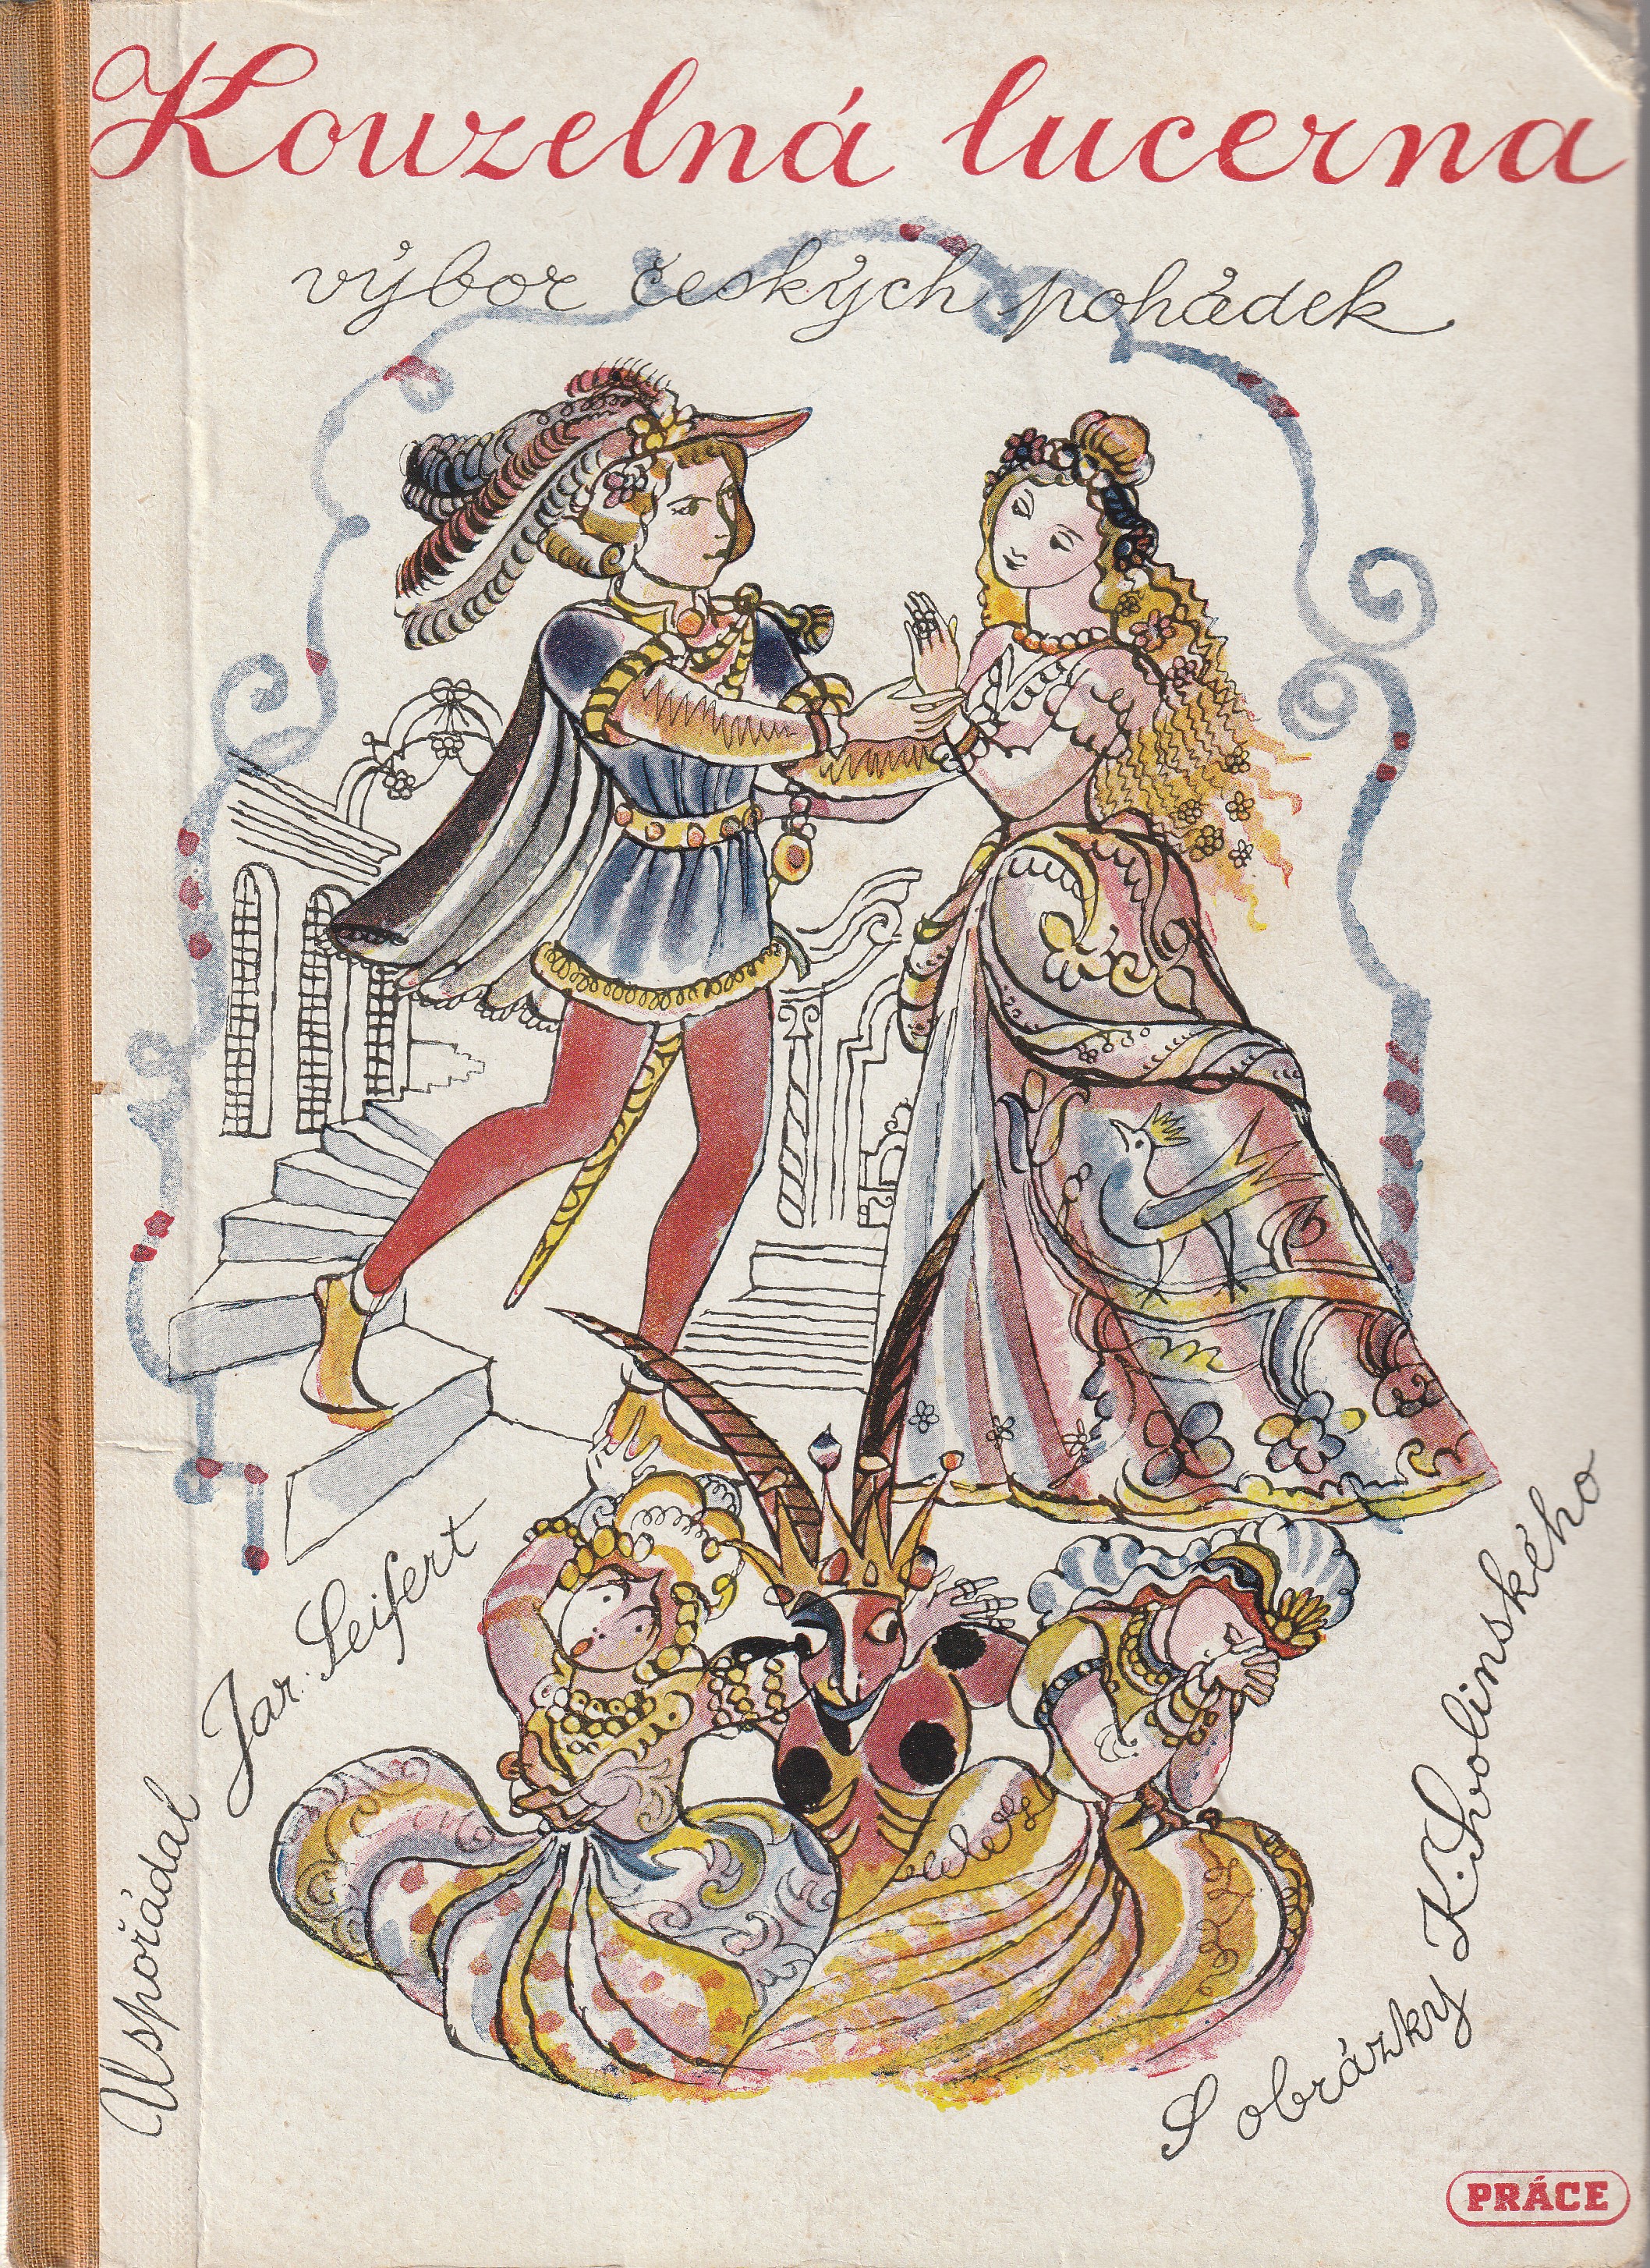 Kouzelná lucerna
výbor českých pohádek
Uspořádal Jar. Seifert
S obrázky K. Svolinského
PRÁCE